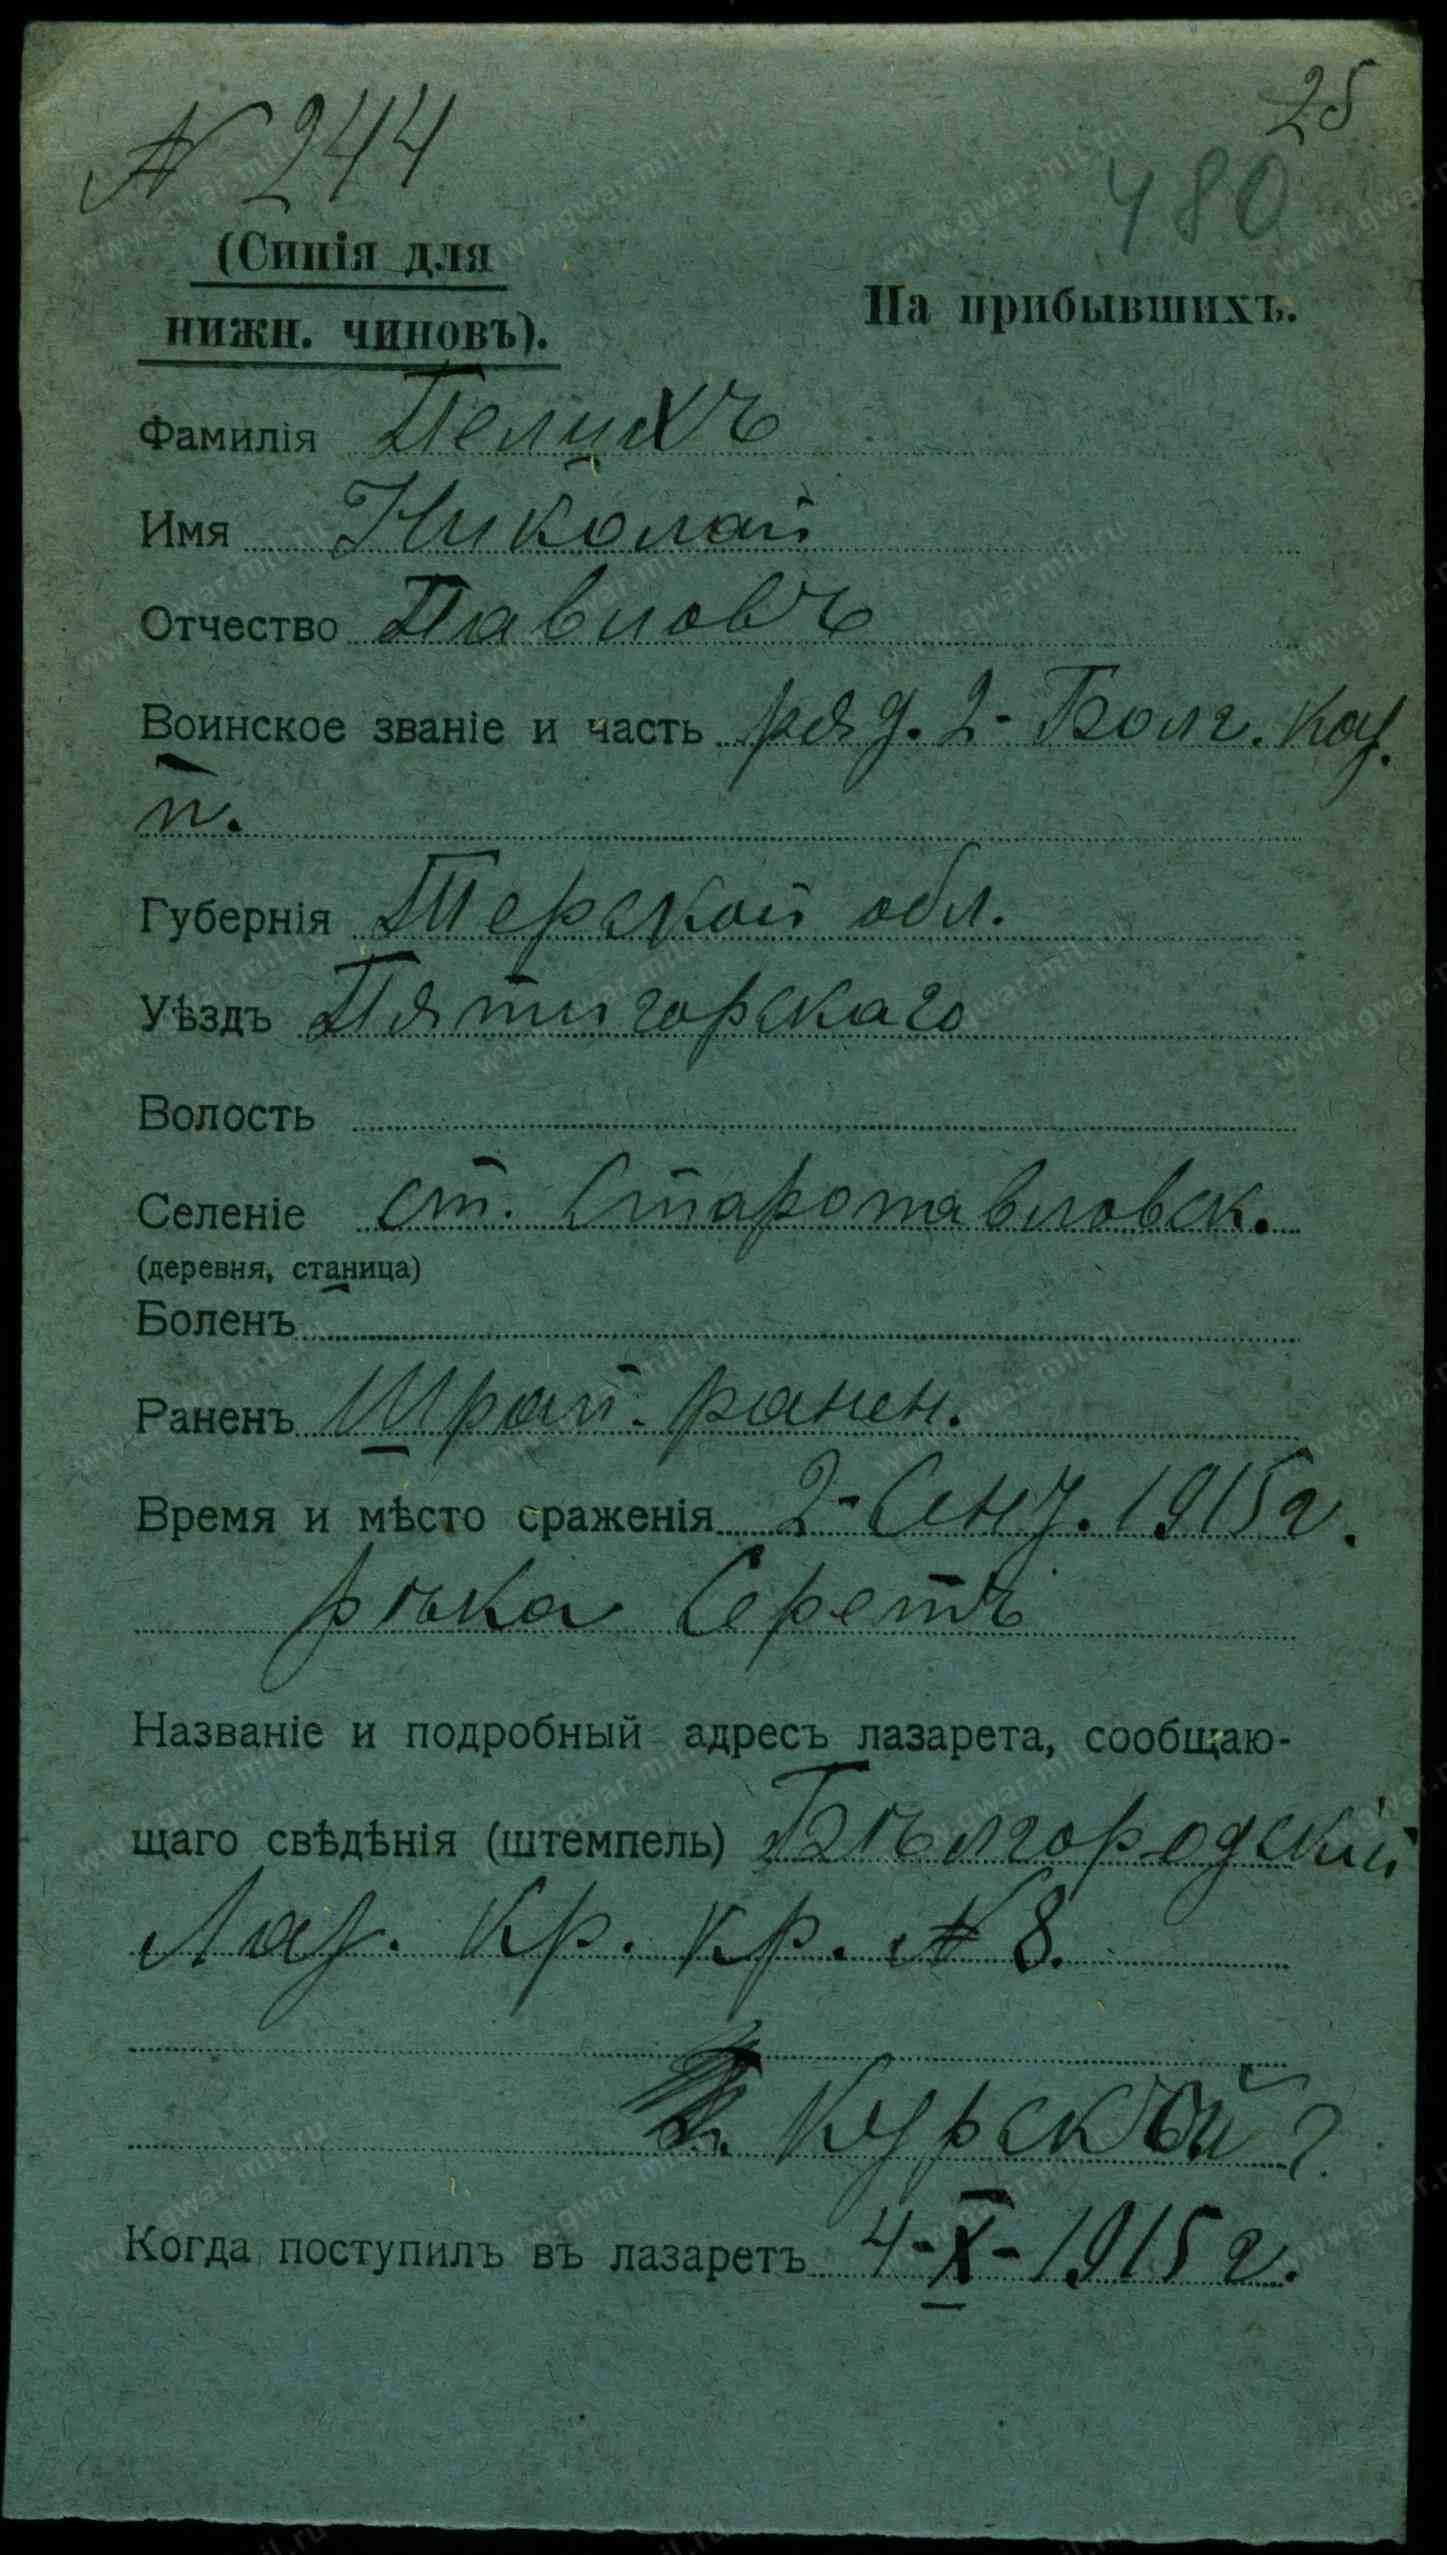 № 244
25
480
(Синія для
нижн. чиновъ).
На прибывшихъ.
Фамилія Пелихъ
Имя Николай
Отчество Павловъ
Воинское званіе и часть ряд. 2- Волг. каз.
п.
Губернія Терской обл.
Уѣздъ Пятигорскаго
Волость
Селеніе ст. Старопавловск.
(деревня, станица)
Боленъ
Раненъ Шрап. ранен.
Время и мѣсто сраженія 2- Сент. 1915 г.
рѣка Серетъ
Названіе и подробный адресъ лазарета, сообщаю-
щаго свѣдѣнія (штемпель) Бѣлгородскій
Лаз. Кр. Кр. № 8.
Курской г.
Когда поступилъ въ лазаретъ 4-X-1915 г.
www.gwar.mil.ru